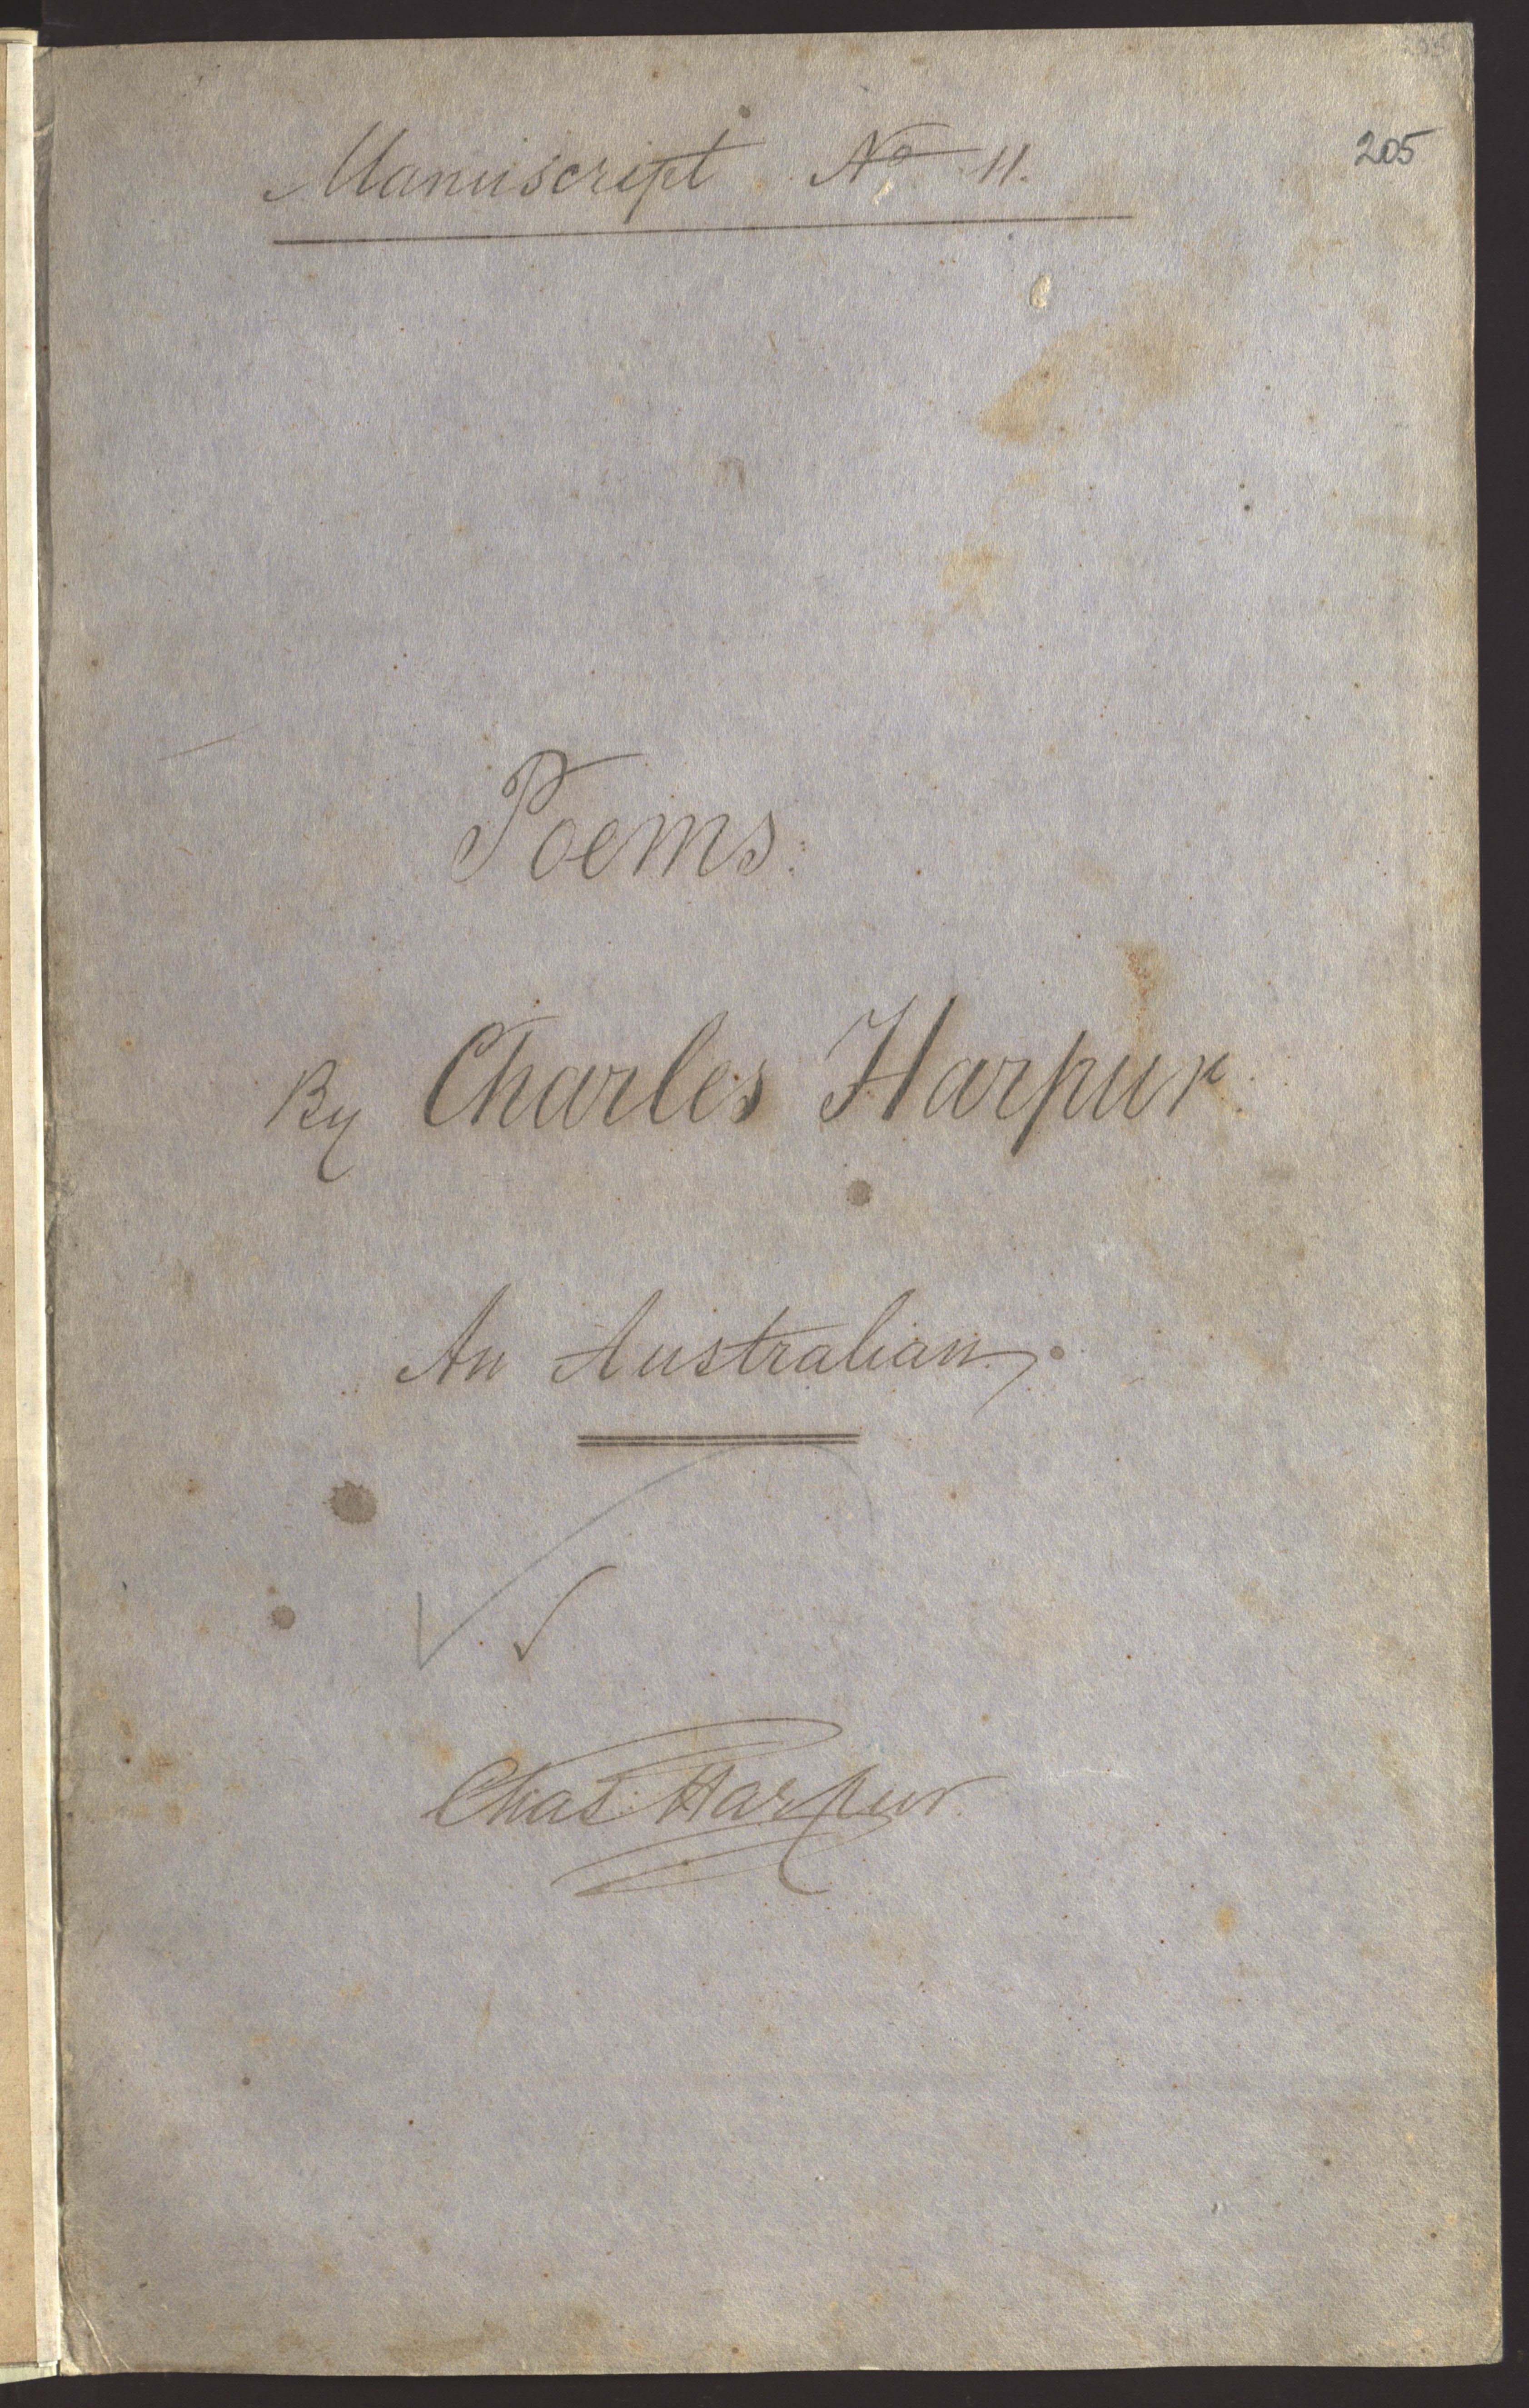 205
Manuscript No 11.
Poems.
By Charles Harpur.
An Australian.
Chas. Harpur.